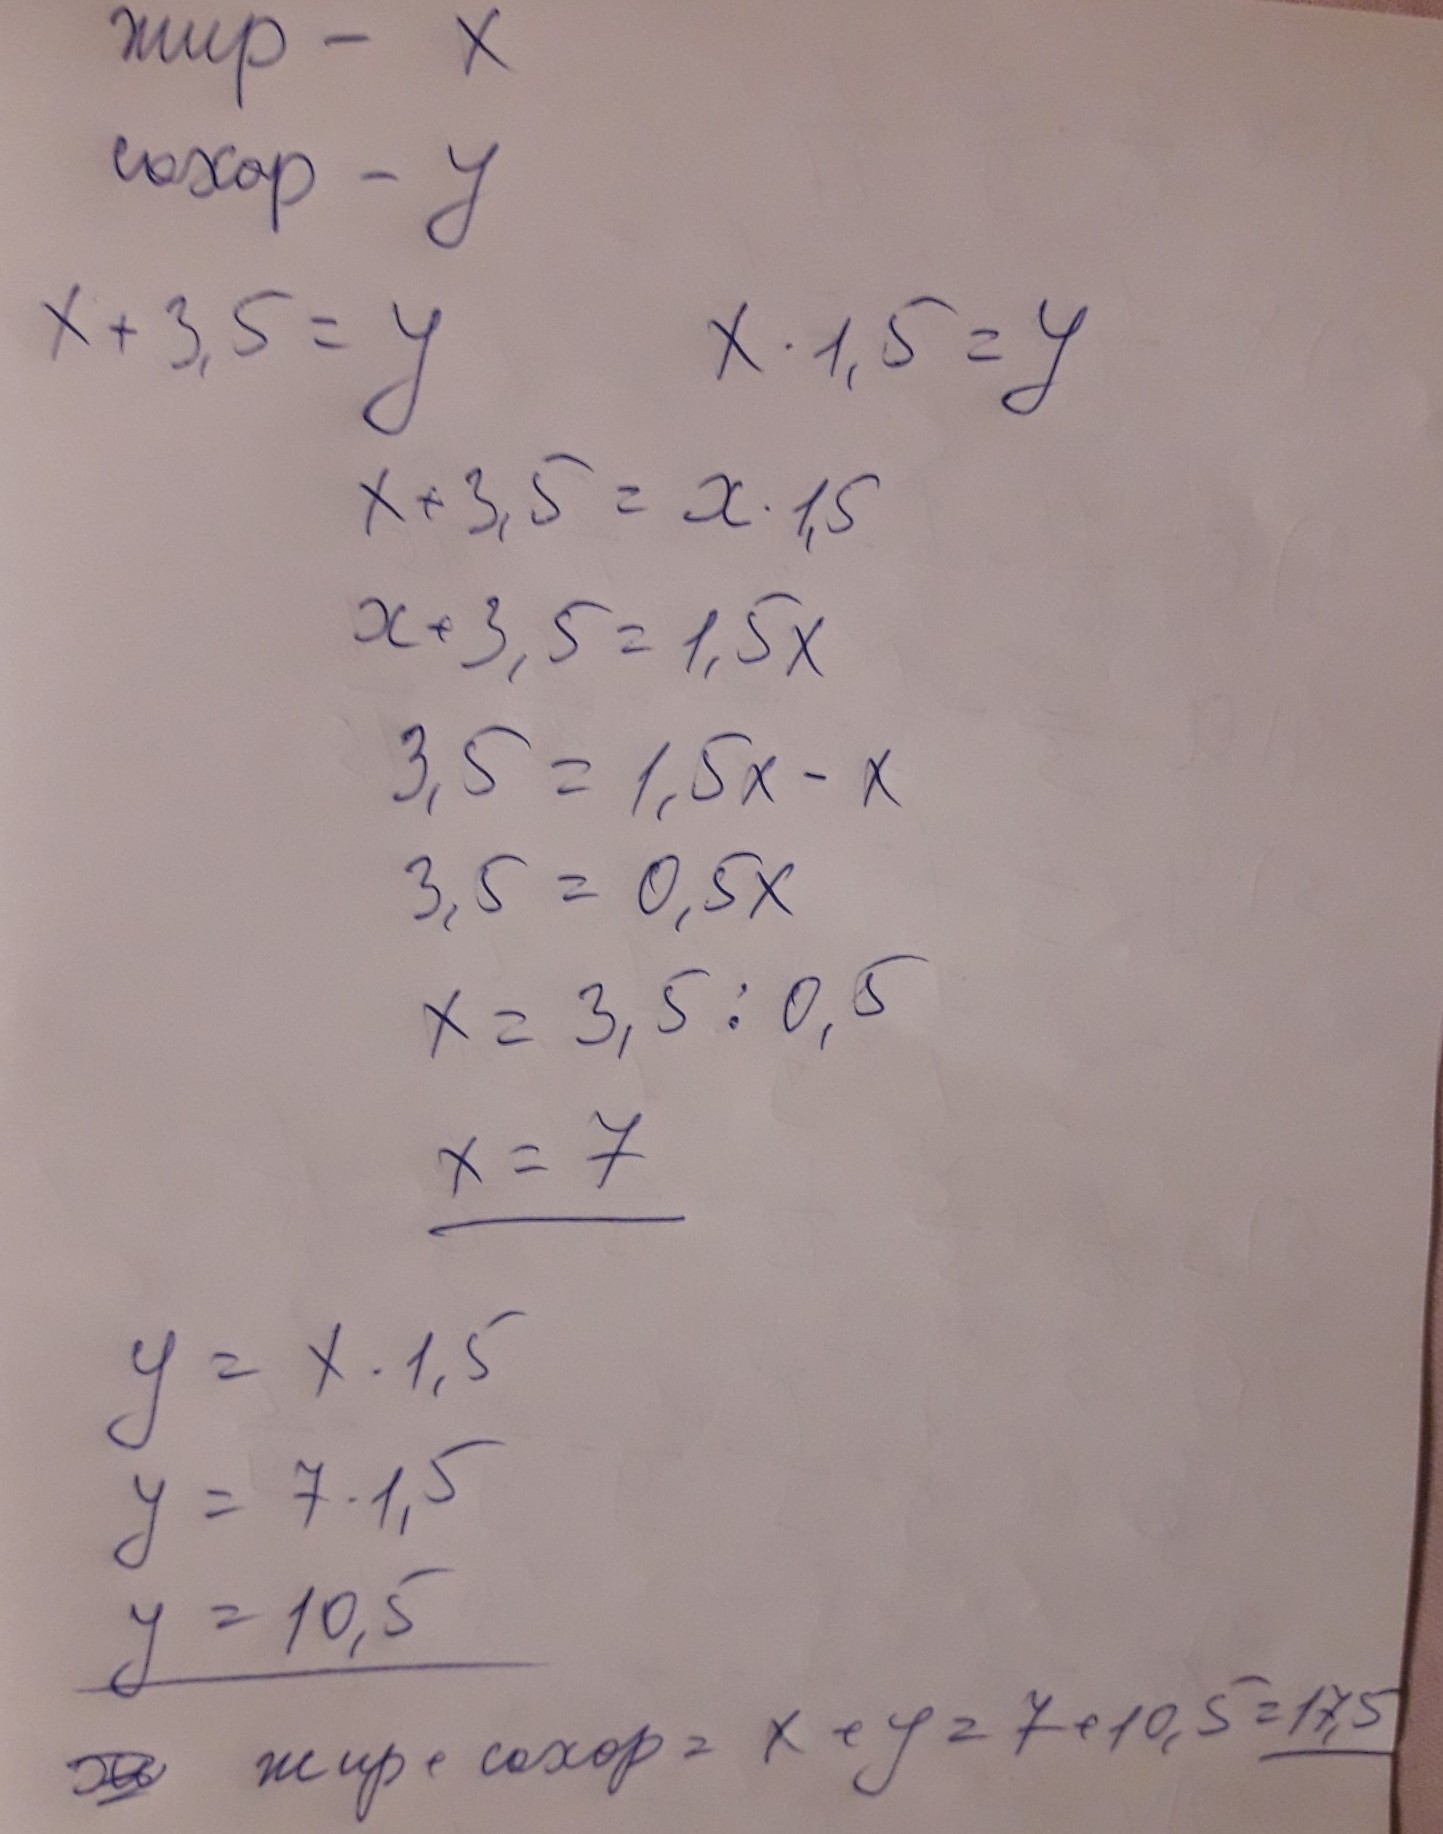 жир - x
сахар - y
x+3,5=y x·1,5=y
x+3,5=x·1,5
x+3,5=1,5x
3,5=1,5x-x
3,5=0,5x
x=3,5:0,5
x=7
y=x·1,5
y=7·1,5
y=10,5
жир+сахар=x+y=7+10,5=17,5